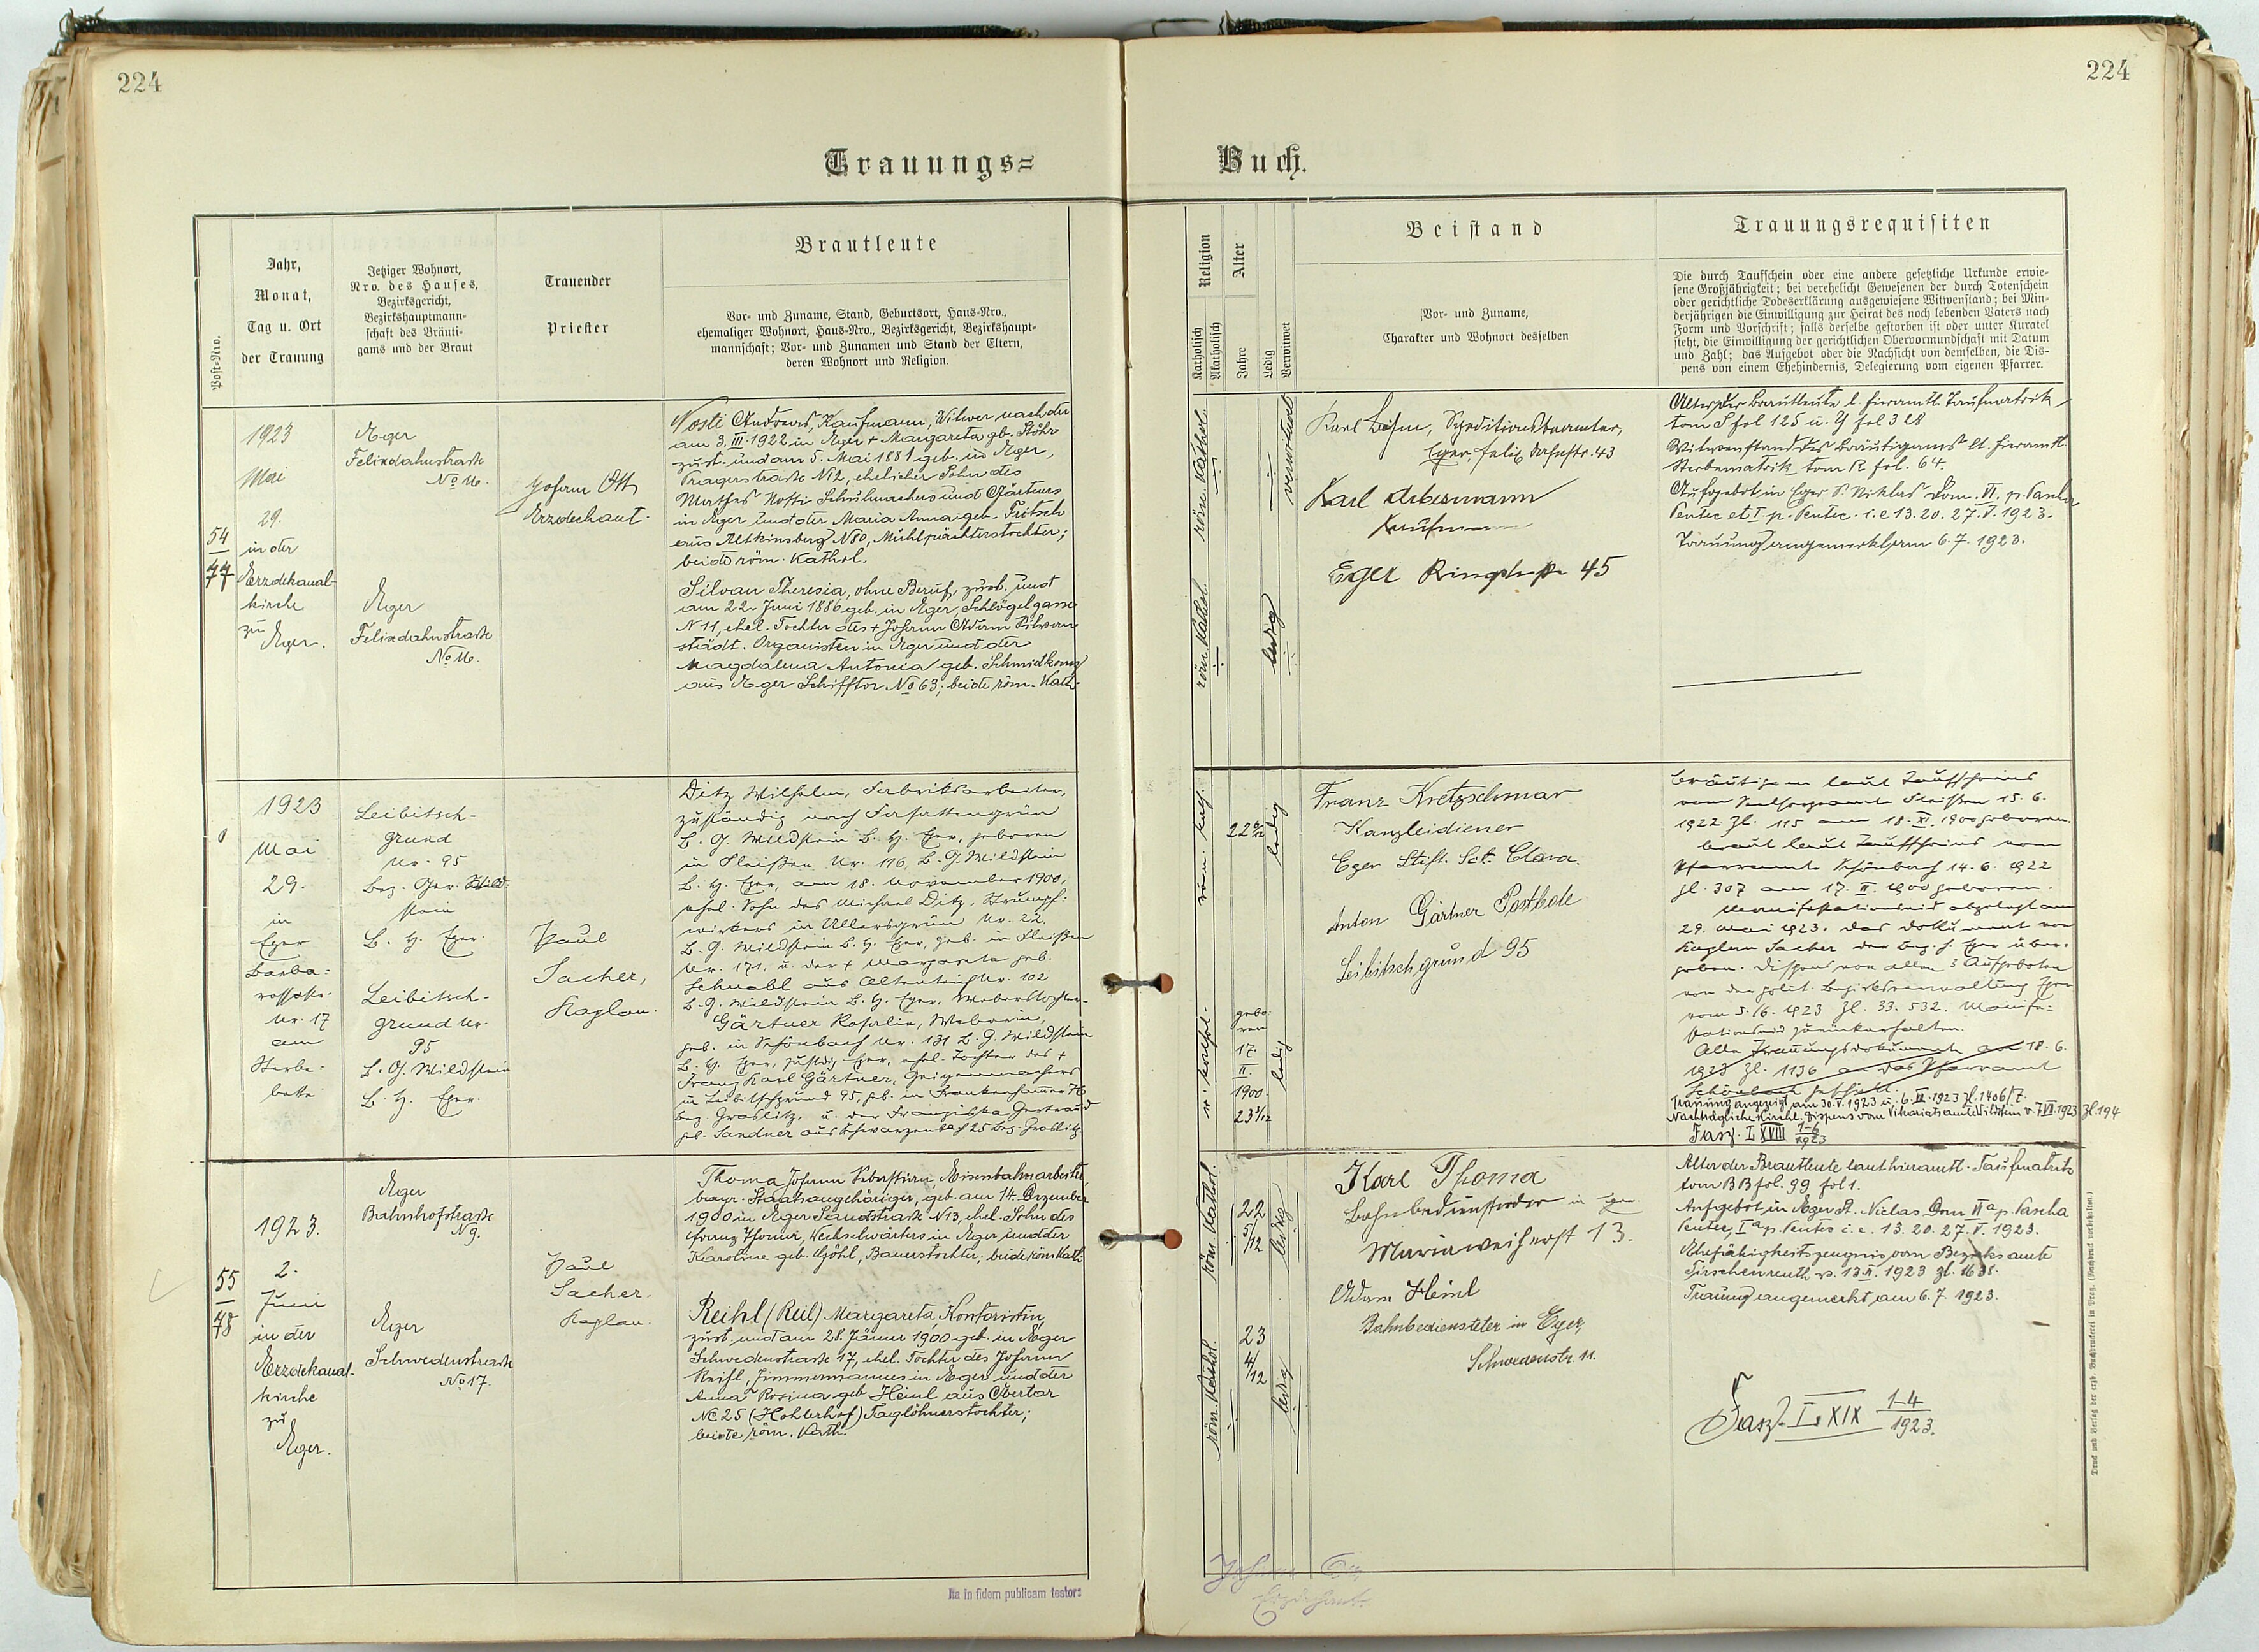 224
224
Trauungs=
Buch.
Post-Nro.
Jahr,
Monat,
Tag u. Ort
der Trauung
Jetziger Wohnort,
Nro. des Hauses,
Bezirksgericht,
Bezirkshauptmann-
schaft des Bräuti-
gams und der Braut
Trauender
Priester
Brautleute
Vor- und Zuname, Stand, Geburtsort, Haus-Nro.,
ehemaliger Wohnort, Haus-Nro., Bezirksgericht, Bezirkshaupt-
mannschaft; Vor- und Zunamen und Stand der Eltern,
deren Wohnort und Religion.
Religion
Katholisch
Akatholisch
Alter
Jahre
Ledig
Verwitwet
Beistand
Vor- und Zuname,
Charakter und Wohnort desselben
Trauungsrequisiten
Die durch Taufschein oder eine andere gesetzliche Urkunde erwie-
sene Großjährigkeit; bei verehelicht Gewesenen der durch Totenschein
oder gerichtliche Todeserklärung ausgewiesene Witwenstand; bei Min-
derjährigen die Einwilligung zur Heirat des noch lebenden Vaters nach
Form und Vorschrift; falls derselbe gestorben ist oder unter Kuratel
steht, die Einwilligung der gerichtlichen Obervormundschaft mit Datum
und Zahl; das Aufgebot oder die Nachsicht von demselben, die Dis-
pens von einem Ehehindernis, Delegierung vom eigenen Pfarrer.
54
77
1923
Mai
29.
in der
Erzdekanal-
kirche
zu
Eger.
Eger
Felixdahnstraße
No 16.
Eger
Felixdahnstraße
No 16.
Johann Ott
Erzdechant.
Nosti Andreas, Kaufmann, Witwer nach der
am 3. III. 1922 in Eger + Margareta gb. Stöhr
zust. und am 5. Mai 1881 geb. in Eger,
Pragerstraße N 12, ehelicher Sohn des
Mathes Nosti Schuhmachers und Gärtners
in Eger und der Maria Anna geb. Fritsch
aus Altkinsberg N 80, Mühlpächterstochter;
beide röm. Kathol.
Silvan Theresia, ohne Beruf, zust. und
am 22. Juni 1886 geb. in Eger, Schlögelgasse
N 11, ehel. Tochter des + Johann Adam Silvan
städt. Organisten in Eger und der
Magdalena Antonia geb. Schmidkonz
aus Eger Schifftor No 63; beide röm. Kath.
röm. Kathol.
röm. Kathol.
verwitwet
ledig
Karl Böhm, Speditionsbeamter,
Eger, Felix Dahnstr. 43
Karl Ackermann
Kaufmann
Eger Ringstraße 45
Alter der Brautleute l. hieramtl. Taufmatrik
tom S fol 125 u. Y fol 328
Witwenstand des Bräutigams lt. hieramtl.
Sterbematrik tom R fol. 64.
Aufgebot in Eger St. Niklas Dom. VI. p. Pascha
Pentec et I. p. Pentec. i. e 13. 20. 27. V. 1923.
Trauung angemerkt am 6. 7. 1923.
1923
Mai
29.
in
Eger
Barba-
rossastr.
Nr. 17
am
Sterbe-
bette
Leibitsch-
grund
Nr. 95
Bez. Ger. Wild-
stein
B. H. Eger.
Leibitsch-
grund Nr.
95
B. G. Wildstein
B. H. Eger.
Paul
Sacher,
Kaplan.
Ditz Wilhelm, Fabriksarbeiter,
zuständig nach Fasattengrün
B. G. Wildstein B. H. Eger, geboren
in Fleißen Nr. 116, B. G. Wildstein
B. H. Eger, am 18. November 1900,
ehel. Sohn des Michael Ditz, Strumpf-
wirkers in Ullersgrün Nr. 22.
B. G. Wildstein B. H. Eger, geb. in Fleißen
Nr. 171. u. der + Margareta geb.
Schnabl aus Altenteich Nr. 102
B. G. Wildstein B. H. Eger, Weberstochter.
Gärtner Rosalia, Weberin,
geb. in Schönbach Nr. 131 B. G. Wildstein
B. H. Eger, zustdg. Eger, ehel. Tochter des +
Franz Karl Gärtner, Geigenmachers
in Leibitschgrund 95, geb. in Frankenhammer 76
Bez. Graslitz, u. der Franziska Gertraud
geb. Sandner aus Schwarzenbach 25 Bez. Graslitz
röm. kath.
r. kathol.
22 6/12
ledig
gebo-
ren
17.
II.
1900.
23 4/12
ledig
Franz Kretzschmar
Kanzleidiener
Eger Stift. Sct. Clara.
Anton Gärtner Postbote
Leibitschgrund 95
Bräutigam laut Taufscheins
vom Seelsorgeamte Fleißen 15. 6.
1922 Zl. 115 am 18. XI. 1900 geboren.
Braut laut Taufscheins vom
Pfarramte Schönbach 14. 6. 1922
Zl. 307 am 17. II. 1900 geboren.
Manifestationseid abgelegt am
29. Mai 1923. Das Dokument von
Kaplan Sacher der Bez. H. Eger über-
geben. Dispens von allen 3 Aufgeboten
von der polit. Bezirksverwaltung Eger
vom 5./6. 1923 Zl. 33.532. Manife-
stationseid zurückerhalten.
Alle Trauungsdokumente am 18. 6.
1923 Zl. 1136 an das Pfarramt
Schönbach geschickt.
Trauung angezeigt am 30. V. 1923 u. 6. VI. 1923 Zl. 1406/7.
Nachträgliche kirchl. Dispens vom Vikariatsamte Wildstein v. 7. VI. 1923 Zl. 194
Fasz. I XVIII 1-6
1923
55
78
1923.
2.
Juni
in der
Erzdekanal-
kirche
zu
Eger.
Eger
Bahnhofstraße
N 9.
Eger
Schwedenstraße
No 17.
Paul
Sacher.
Kaplan.
Thoma Johann Sebastian, Eisenbahnarbeiter,
bayr. Staatsangehöriger, geb. am 14. Dezember
1900 in Eger Sandstraße N 13, ehel. Sohn des
Franz Thoma, Wechselwärters in Eger und der
Karoline geb. Göhl, Bauerstochter, beide röm. Kath.
Reihl (Reil) Margareta, Kontoristin,
zust. und am 28. Jänner 1900 geb. in Eger
Schwedenstraße 17, ehel. Tochter des Johann
Reihl, Zimmermannes in Eger und der
Anna Rosina geb Heinl aus Obertor
No 25 (Hohlerhof) Taglöhnerstochter;
beide röm. Kath.
röm. Kathol.
röm. Kathol.
22
5/12
ledig
23
4/12
ledig
Karl Thoma
Bahnbediensteter in Eger
Mariaweiherst 13.
Adam Heinl
Bahnbediensteter in Eger,
Schwedenstr. 11.
Alter der Brautleute laut hieramtl. Taufmatrik
tom BB fol. 99 fol 1.
Aufgebot in Eger St. Niclas Dom VI a p. Pascha
Pentec, I a p. Pentec i. e. 13. 20. 27. V. 1923.
Ehefähigkeitszeugnis vom Bezirksamte
Tirschenreuth v. 13. II. 1923 Zl. 1638.
Trauung angemerkt am 6. 7. 1923.
Fasz. I. XIX 1-4
1923.
Ita in fidem publicam testor:
Johann Ott
Erzdechant.
Druck und Verlag der erzb. Buchdruckerei in Prag. (Nachdruck vorbehalten.)